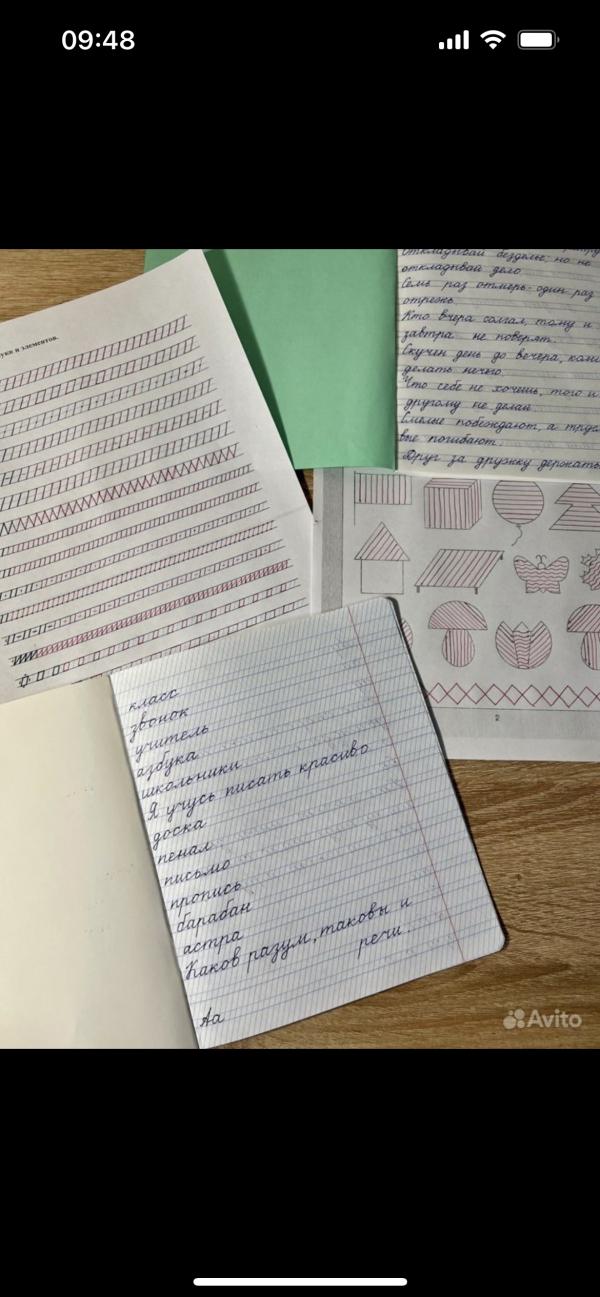 09:48
откладывай безделье, но не
откладывай дело
Семь раз отмерь - один раз
отрежь.
Кто вчера солгал, тому и
завтра не поверят.
Скучен день до вечера, коли
делать нечего.
Что себе не хочешь, того и
другому не делай.
Смелые побеждают, а трус
вые погибают.
Друг за дружку держать
и элементов.
2
класс
звонок
учитель
азбука
школьники
Я учусь писать красиво
доска
пенал
письмо
пропись
барабан
астра
Каков разум, таковы и
речи.
Аа
Avito